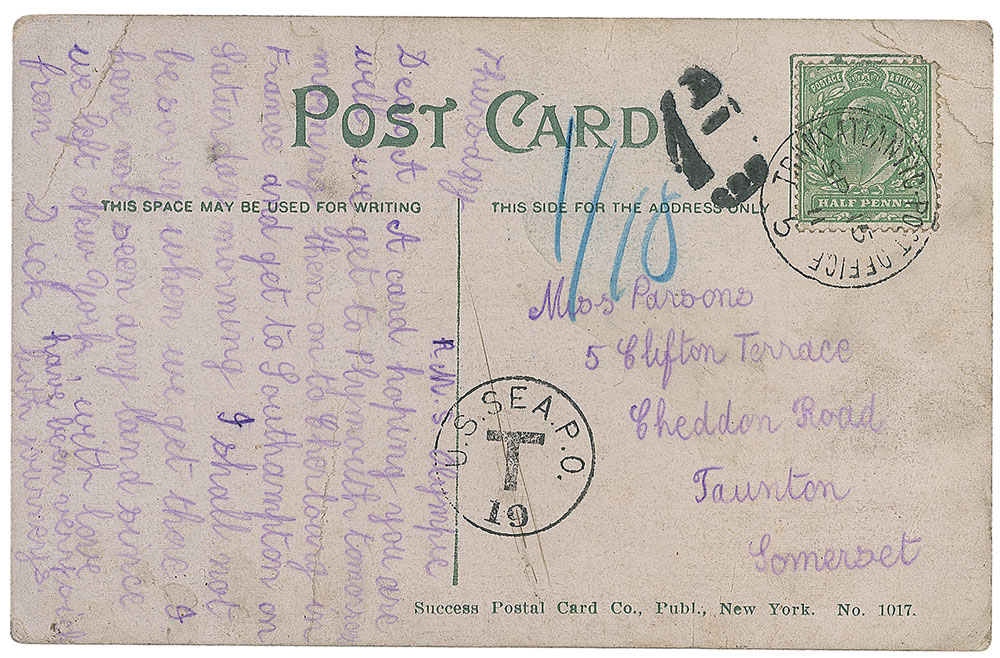 POST CARD
THIS SPACE MAY BE USED FOR WRITING
THIS SIDE FOR THE ADDRESS ONLY
Thursday
R.M.S Olympic
Dear A A card hoping you are
well we get to Plymouth tomorrow
morning then on to in
France and get to Southampton on
Saturday morning I shall not
be sorry when we get there I
have not seen any land since
we left New York with love
from Dick have been very poorly
both journeys
1/18
POSTAGE & REVENUE
HALF PENNY
TRANSATLANTIC POST OFFICE
5
SP
Miss Parsons
5 Clifton Terrace
Cheddon Road
Taunton
Somerset
U.S. SEA. P.O.
T
19
Success Postal Card Co., Publ., New York. No. 1017.